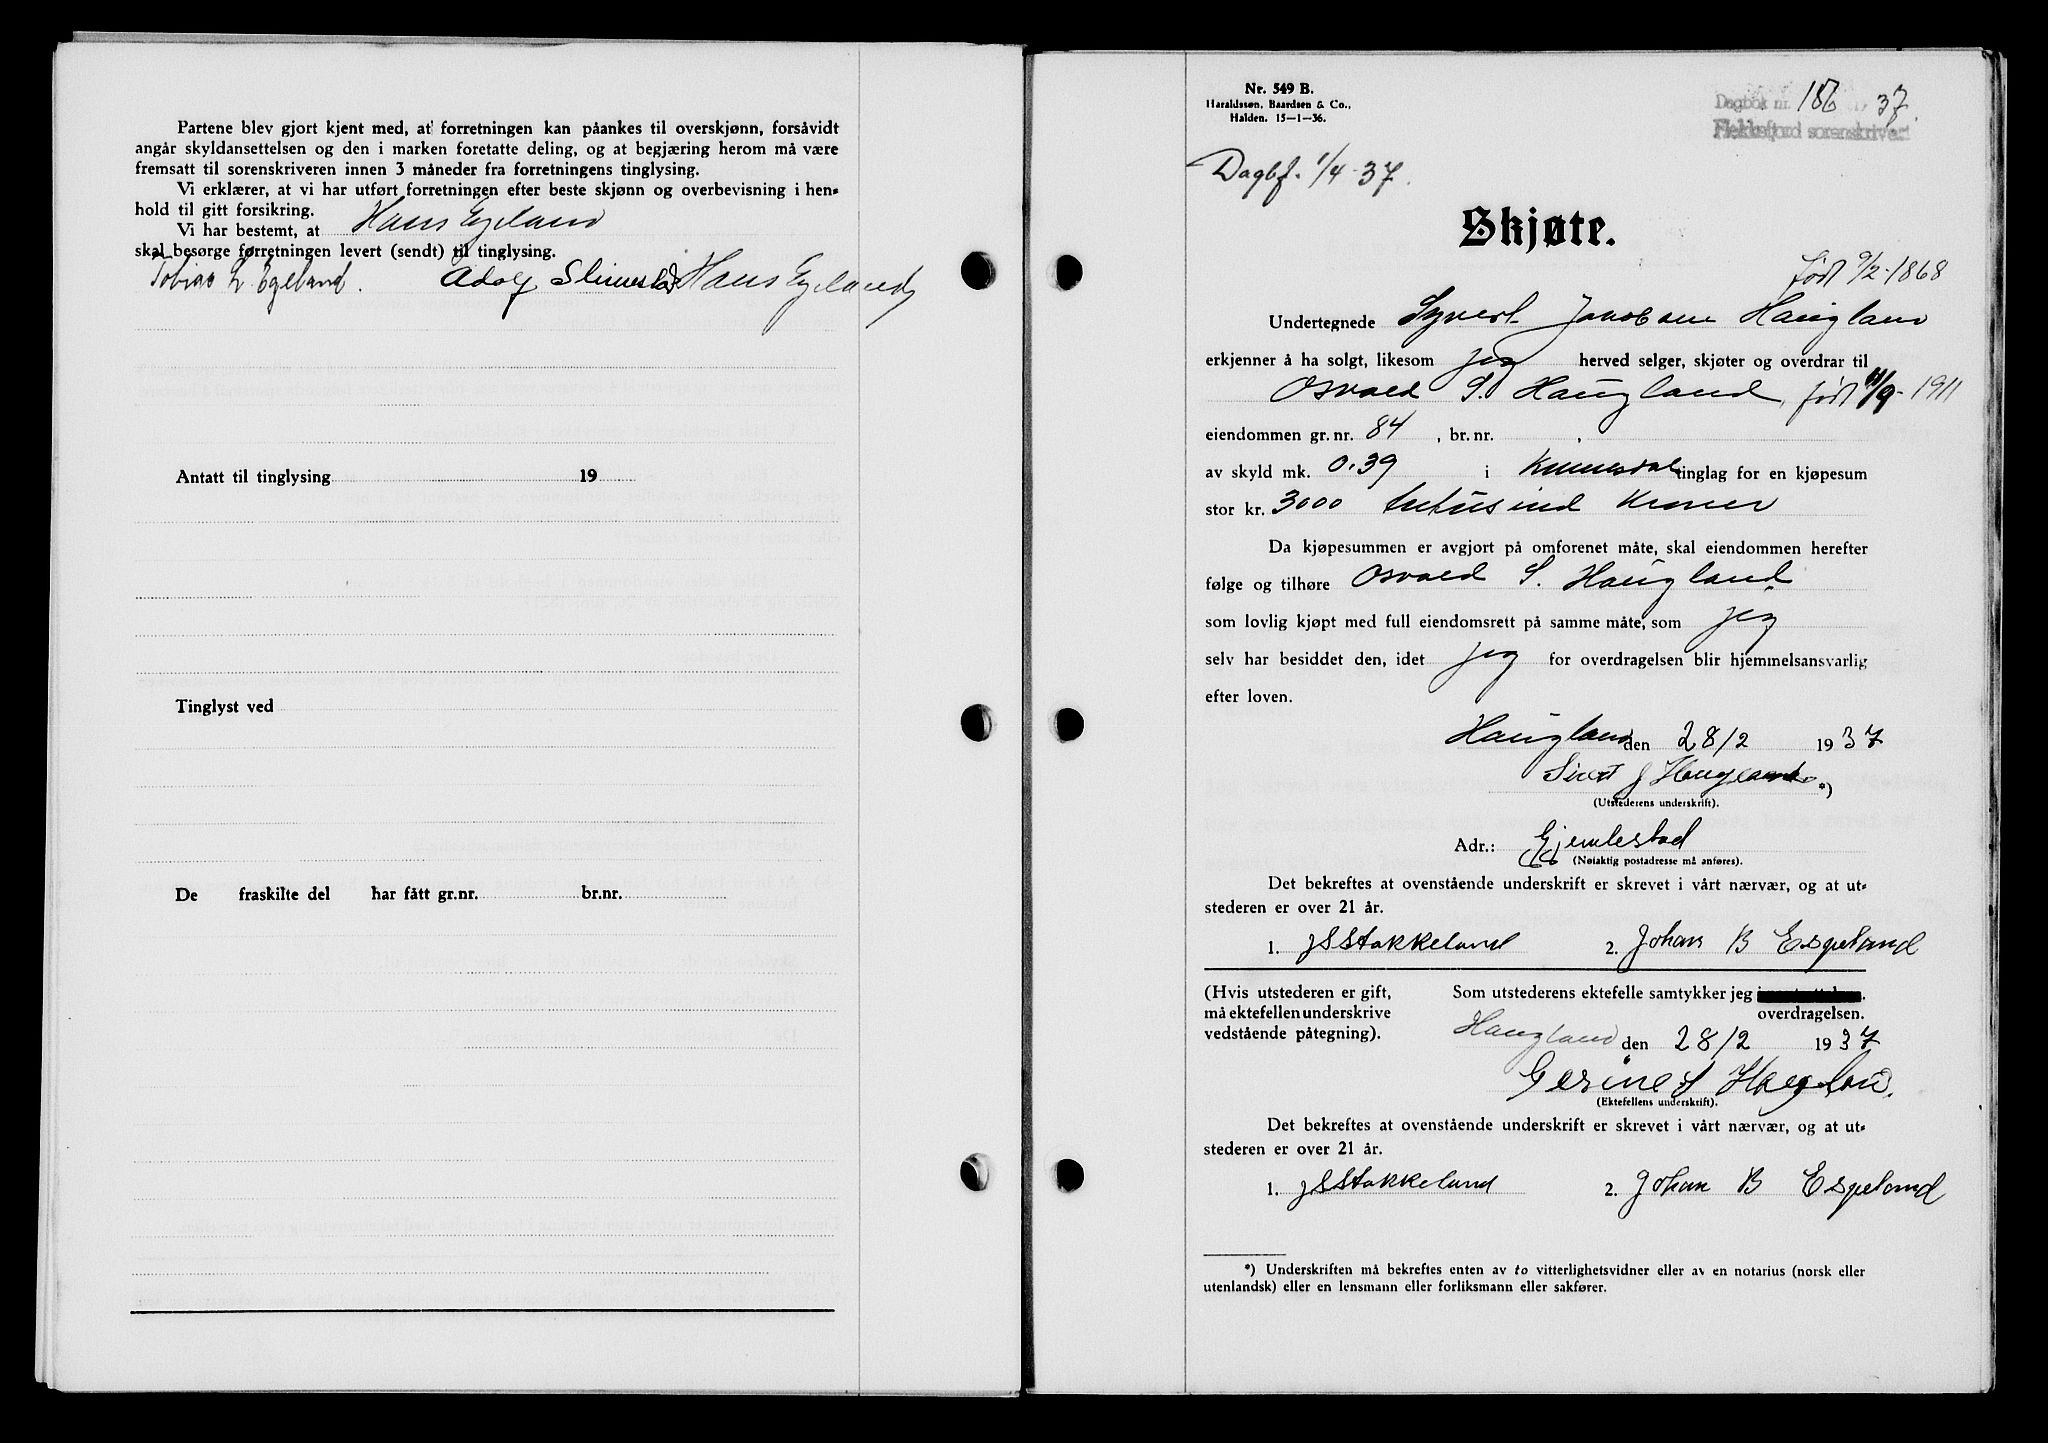 Partene blev gjort kjent med, at forretningen kan påankes til overskjønn, forsåvidt
angår skyldansettelsen og den i marken foretatte deling, og at begjæring herom må være
fremsatt til sorenskriveren innen 3 måneder fra forretningens tinglysing.
Vi erklærer, at vi har utført forretningen efter beste skjønn og overbevisning i hen-
hold til gitt forsikring.
Vi har bestemt, at Hans Egeland
skal besørge forretningen levert (sendt) til tinglysing.
Tobias L Egeland. Adolf Hans Egeland
Antatt til tinglysing 19
Tinglyst ved
De fraskilte del har fått gr.nr. br.nr.
Nr. 549 B.
Haraldssøn, Baardsen & Co.,
Halden. 15—1—36.
Dagbok nr. 186 1937.
Flekkefjord sorenskriveri
Dagbf. 1/4-37.
Skjøte.
født 9/2-1868
Undertegnede Syvert Jakobsen Haugland
erkjenner å ha solgt, likesom jeg herved selger, skjøter og overdrar til
Osvald S. Haugland, født 11/9-1911
eiendommen gr. nr. 84, br. nr.
av skyld mk. 0.39 i Kvinesdal tinglag for en kjøpesum
stor kr. 3000 tretusind Kroner
Da kjøpesummen er avgjort på omforenet måte, skal eiendommen herefter
følge og tilhøre Osvald S. Haugland
som lovlig kjøpt med full eiendomsrett på samme måte, som jeg
selv har besiddet den, idet jeg for overdragelsen blir hjemmelsansvarlig
efter loven.
Haugland den 28/2 1937
Sivert J Haugland *)
(Utstederens underskrift).
Adr.: Gjemlestad
(Nøiaktig postadresse må anføres).
Det bekreftes at ovenstående underskrift er skrevet i vårt nærvær, og at ut-
stederen er over 21 år.
1. J S Stakkeland 2. Johan B Espeland
(Hvis utstederen er gift, Som utstederens ektefelle samtykker jeg
må ektefellen underskrive overdragelsen.
vedstående påtegning). Haugland den 28/2 1937
Gesine S Haugland.
(Ektefellens underskrift).
Det bekreftes at ovenstående underskrift er skrevet i vårt nærvær, og at ut-
stederen er over 21 år.
1. J S Stakkeland 2. Johan B Espeland
*) Underskriften må bekreftes enten av to vitterlighetsvidner eller av en notarius (norsk eller
utenlandsk) eller en lensmann eller forliksmann eller sakfører.